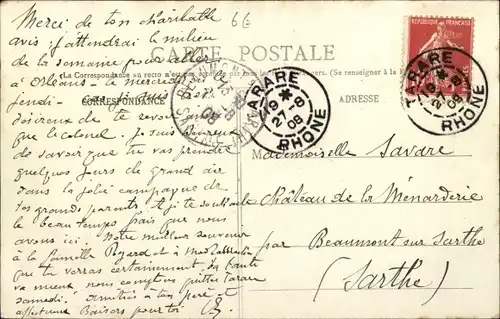 Merci de ton charitable
avis j'attendrai le milieu
de la semaine pour aller
à Orléans - le mercredi le
jeudi - je suis
désireux de te revoir
que le colonel. Je suis heureux
de savoir que tu vas prendre
quelques jours de grand air
dans la jolie campagne de
tes grands parents et je te souhaite
le beau temps que nous
avons ici. Notre meilleur souvenir
à la famille et à Mad
que tu verras certainement. Sa santé
va mieux nous comptons quitter Tarare
samedi. Amitiés à ton père et
affectueux Baisers pour toi
66
CARTE POSTALE
La Correspondance au recto n'est pas (Se renseigner à la
CORRESPONDANCE
ADRESSE
REPUBLIQUE FRANÇAISE
TARARE
19
27-8
08
RHÔNE
TARARE
19
27-8
08
RHÔNE
Mademoiselle Savare
Château de la Ménarderie
par Beaumont sur Sarthe
(Sarthe)